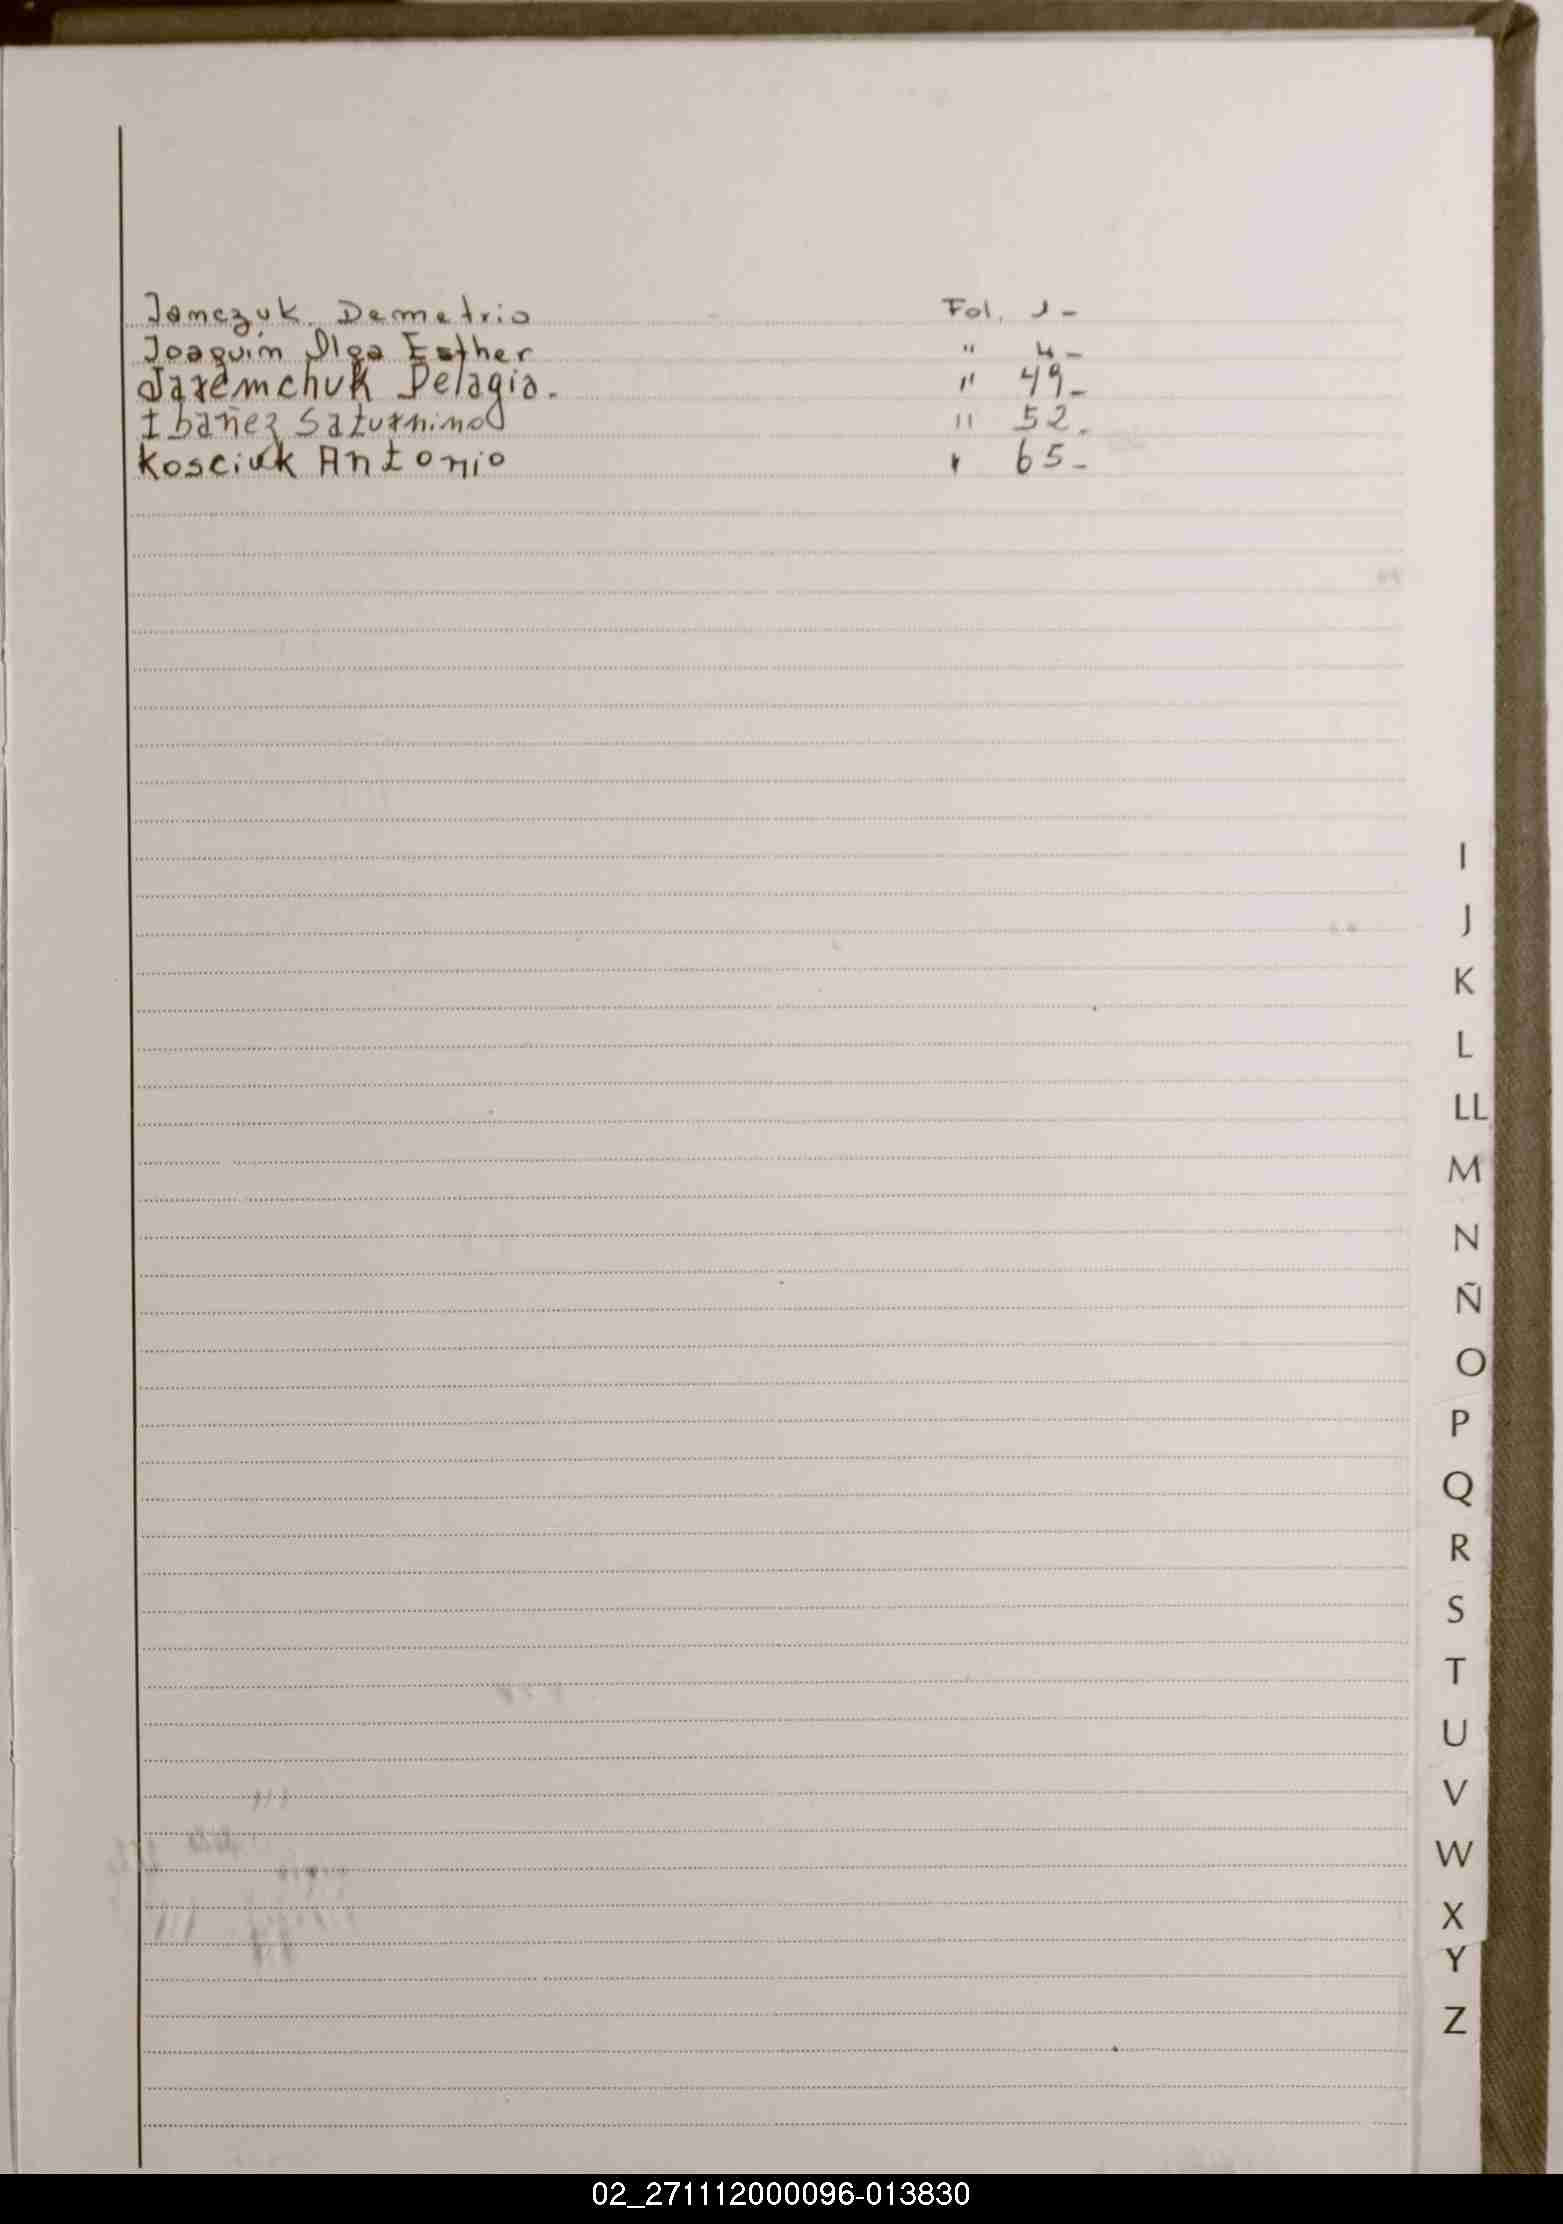 Jamczuk Demetrio Fol. 1-
Joaquim Olga Esther " 4-
Jaremchuk Pelagia. " 49-
Ibañez Saturnino " 52.
Kosciuk Antonio " 65-
I
J
K
L
LL
M
N
Ñ
O
P
Q
R
S
T
U
V
W
X
Y
Z
02_271112000096-013830